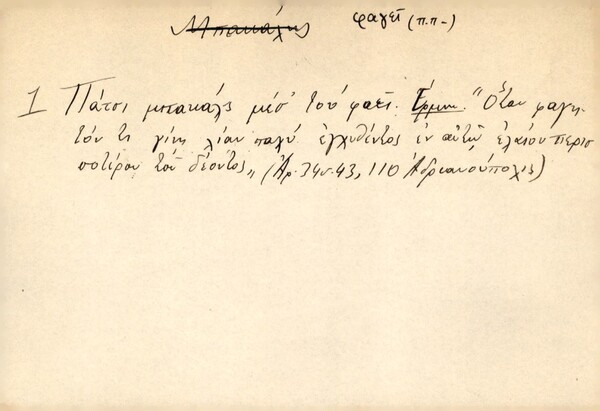 Μπακάλης φαγεῖ (π.π-)
1 Πάτσι μπακάλς μέσ' τοὺ φαεῖ. Ἑρμην. "Ὅταν φαγη-
τόν τι γίνη λίαν παχύ ἐγχυθέντος ἐν αὐτῷ ἐλαίου περισ
σοτέρου τοῦ δέοντος„ (Ἀρ. 741.43, 110 Ἀδριανούπολις)